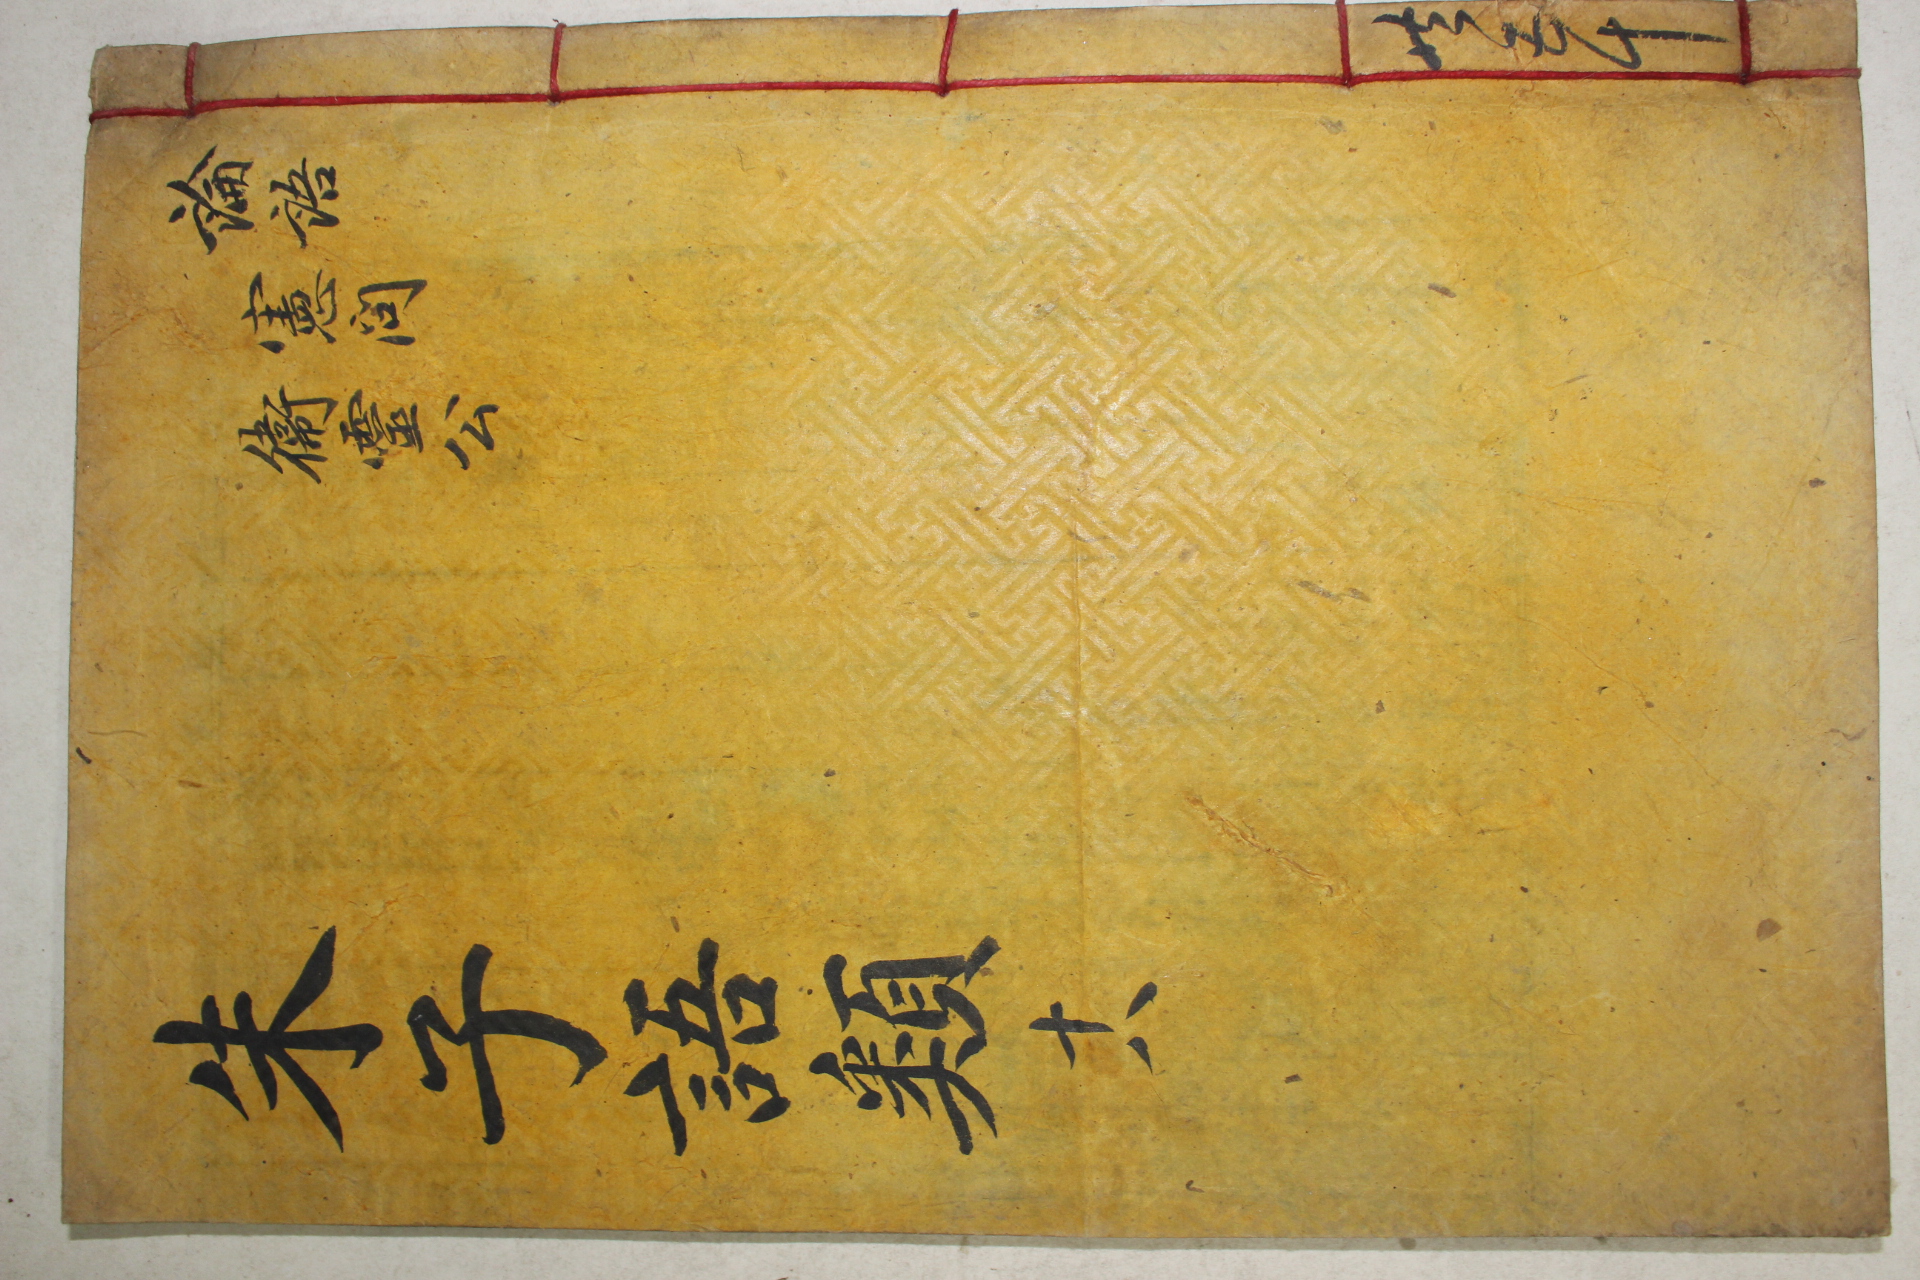 共五十
論語
憲問
衛靈公
朱子語類 十八